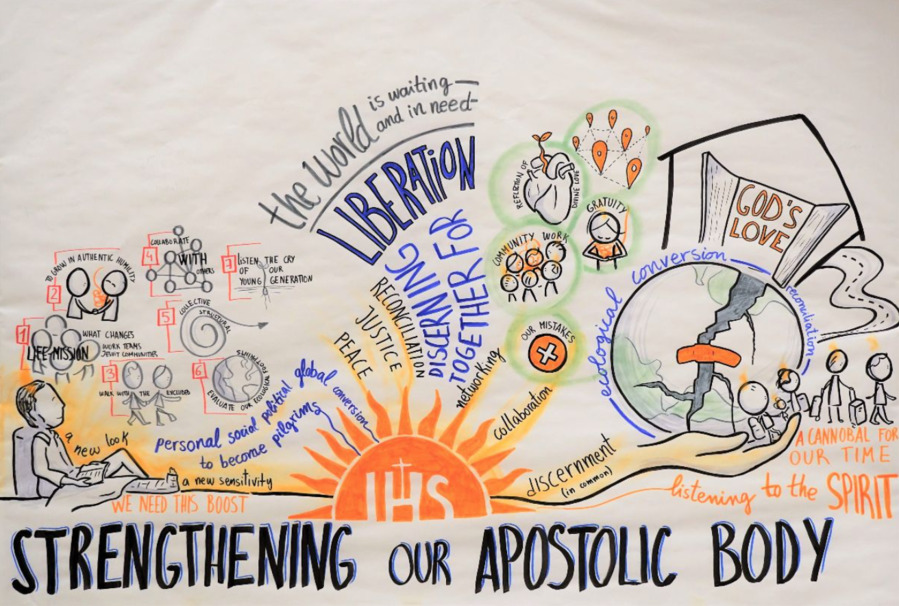 the World
is waiting –
and in need –
LIBERATION
DISCERNING
TOGETHER FOR
RECONCILIATION
JUSTICE
PEACE
networking
collaboration
discernment
(in common)
REFLECTION OF
DIVINE LOVE
GRATUITY
COMMUNITY WORK
OUR MISTAKES
GOD'S
LOVE
ecological conversion
reconciliation
2
TO GROW IN AUTHENTIC HUMILITY
COLLABORATE
4
WITH
OTHERS
7
LISTEN THE CRY
OF OUR
YOUNG GENERATION
1
LIFE-MISSION
WHAT CHANGES
WORK TEAMS
JESUIT COMMUNITIES
5
COLLECTIVE
STRUCTURAL
3
WALK WITH THE EXCLUDED
6
EVALUATE OUR
a new look
a new sensitivity
WE NEED THIS BOOST
personal social political global conversion
to become pilgrims
IHS
A CANNOBAL FOR
OUR TIME
listening to the SPIRIT
STRENGTHENING OUR APOSTOLIC BODY